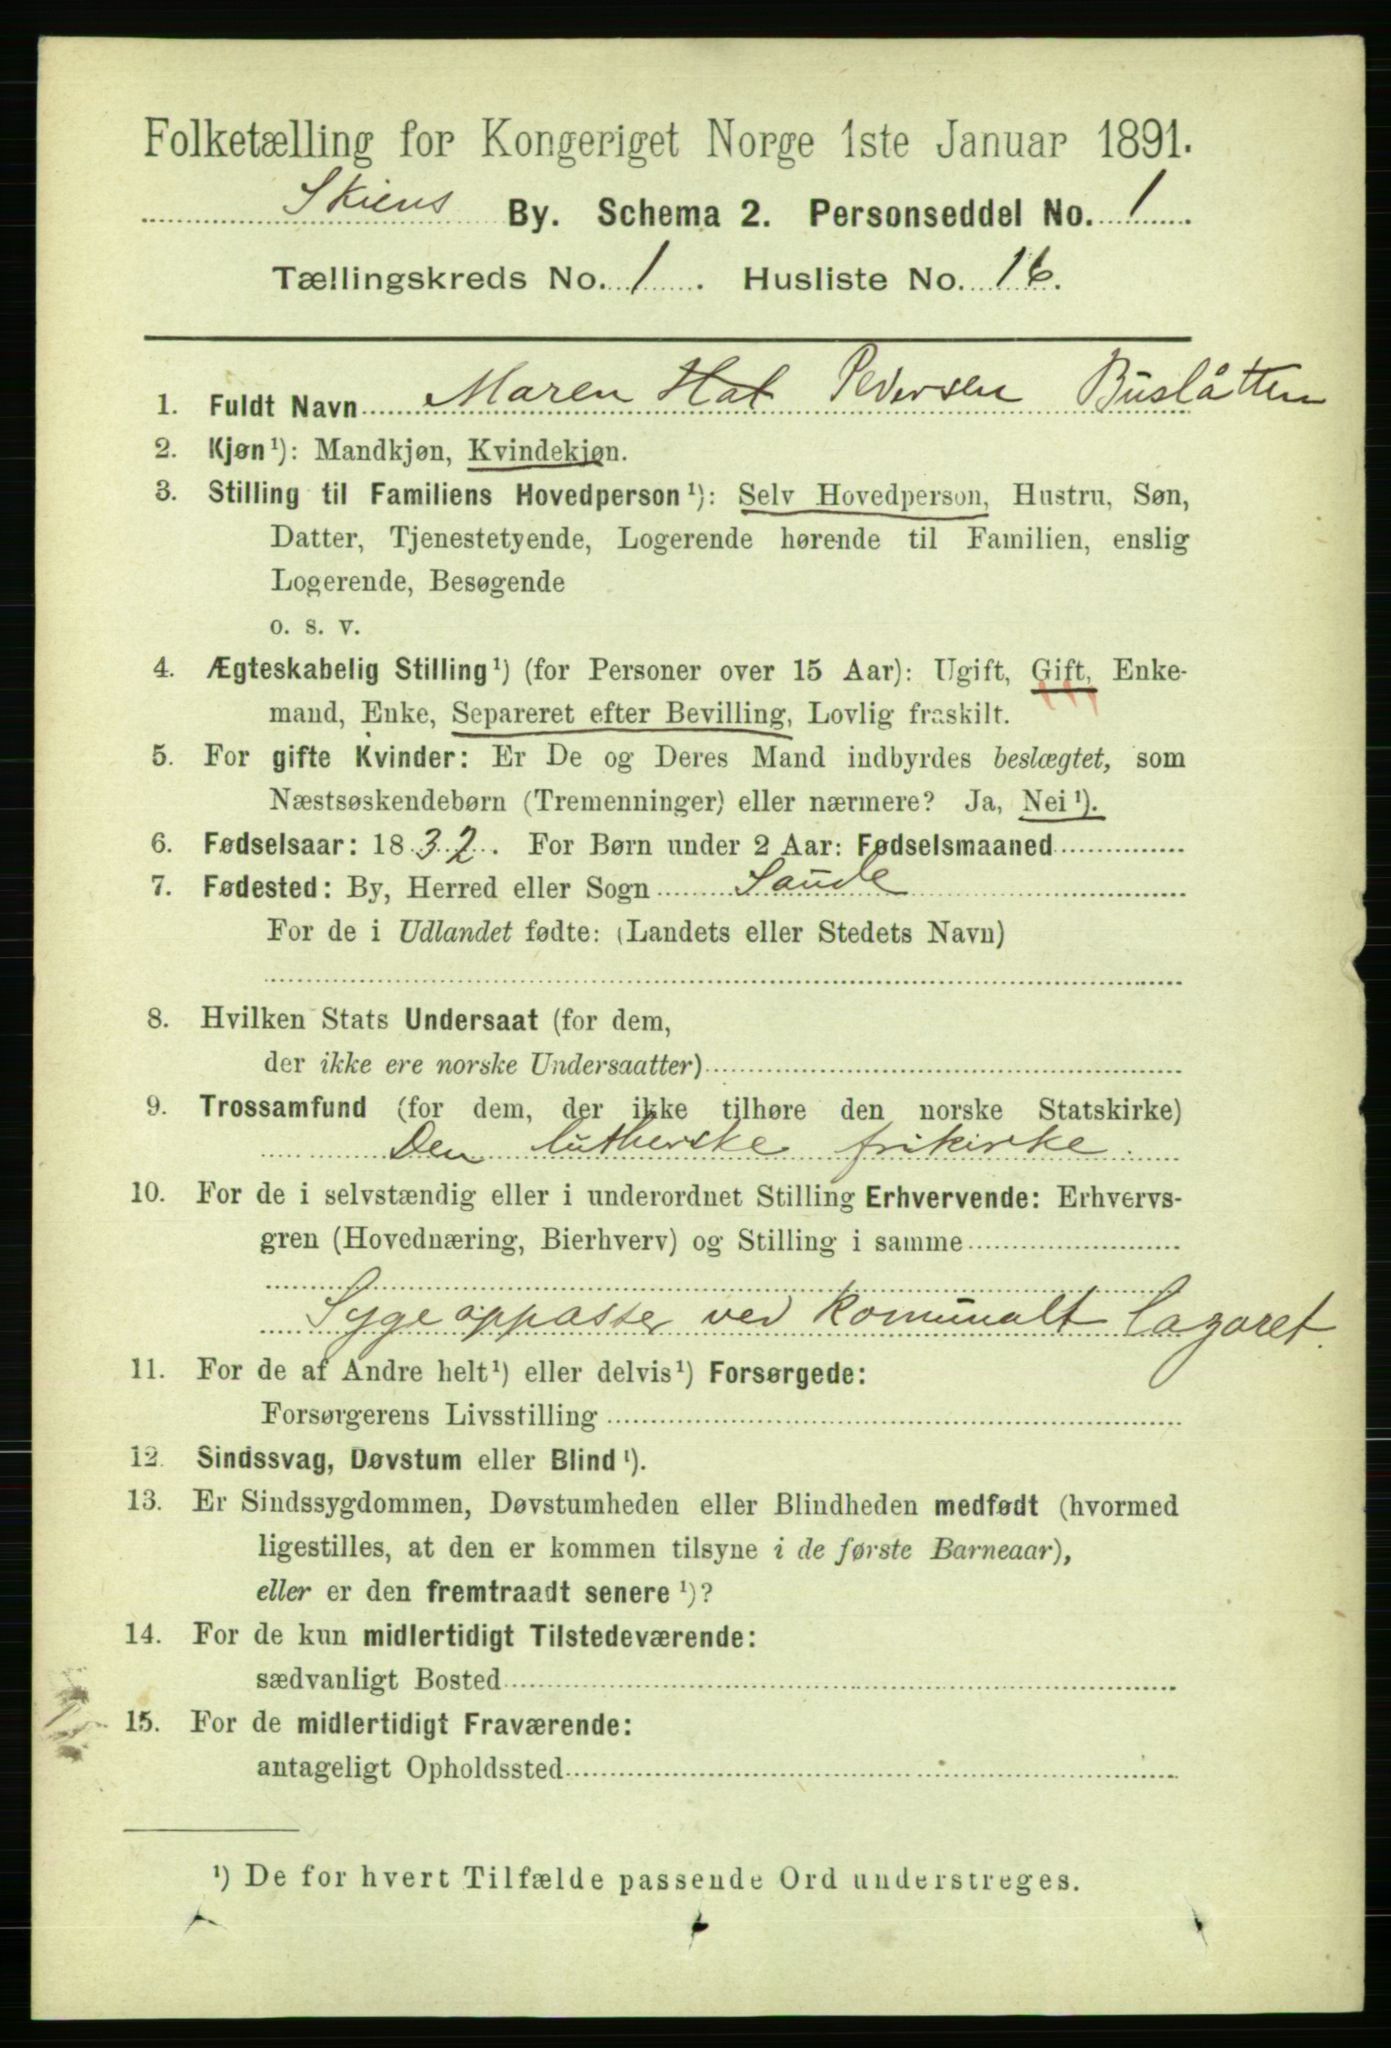 Folketælling for Kongeriget Norge 1ste Januar 1891.
Skiens By. Schema 2. Personseddel No. 1
Tællingskreds No. 1. Husliste No. 16.
1. Fuldt Navn Maren Hal Pedersen Buslåtten
2. Kjøn¹): Mandkjøn, Kvindekjøn.
3. Stilling til Familiens Hovedperson¹): Selv Hovedperson, Hustru, Søn,
Datter, Tjenestetyende, Logerende hørende til Familien, enslig
Logerende, Besøgende
o. s. v.
4. Ægteskabelig Stilling¹) (for Personer over 15 Aar): Ugift, Gift, Enke-
mand, Enke, Separeret efter Bevilling, Lovlig fraskilt.
5. For gifte Kvinder: Er De og Deres Mand indbyrdes beslægtet, som
Næstsøskendebørn (Tremenninger) eller nærmere? Ja, Nei¹).
6. Fødselsaar: 1832. For Børn under 2 Aar: Fødselsmaaned
7. Fødested: By, Herred eller Sogn Saude
For de i Udlandet fødte: (Landets eller Stedets Navn)
8. Hvilken Stats Undersaat (for dem,
der ikke ere norske Undersaatter)
9. Trossamfund (for dem, der ikke tilhøre den norske Statskirke)
Den lutherske frikirke.
10. For de i selvstændig eller i underordnet Stilling Erhvervende: Erhvervs-
gren (Hovednæring, Bierhverv) og Stilling i samme
Sygeoppasser ved komunalt Lazaret.
11. For de af Andre helt¹) eller delvis¹) Forsørgede:
Forsørgerens Livsstilling
12. Sindssvag, Døvstum eller Blind¹).
13. Er Sindssygdommen, Døvstumheden eller Blindheden medfødt (hvormed
ligestilles, at den er kommen tilsyne i de første Barneaar),
eller er den fremtraadt senere¹)?
14. For de kun midlertidigt Tilstedeværende:
sædvanligt Bosted
15. For de midlertidigt Fraværende:
antageligt Opholdssted
¹) De for hvert Tilfælde passende Ord understreges.